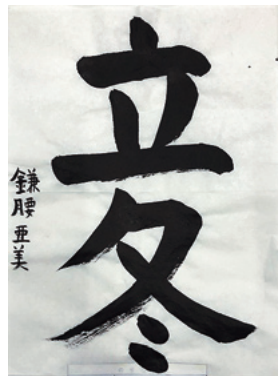 立冬
鎌腰亜美